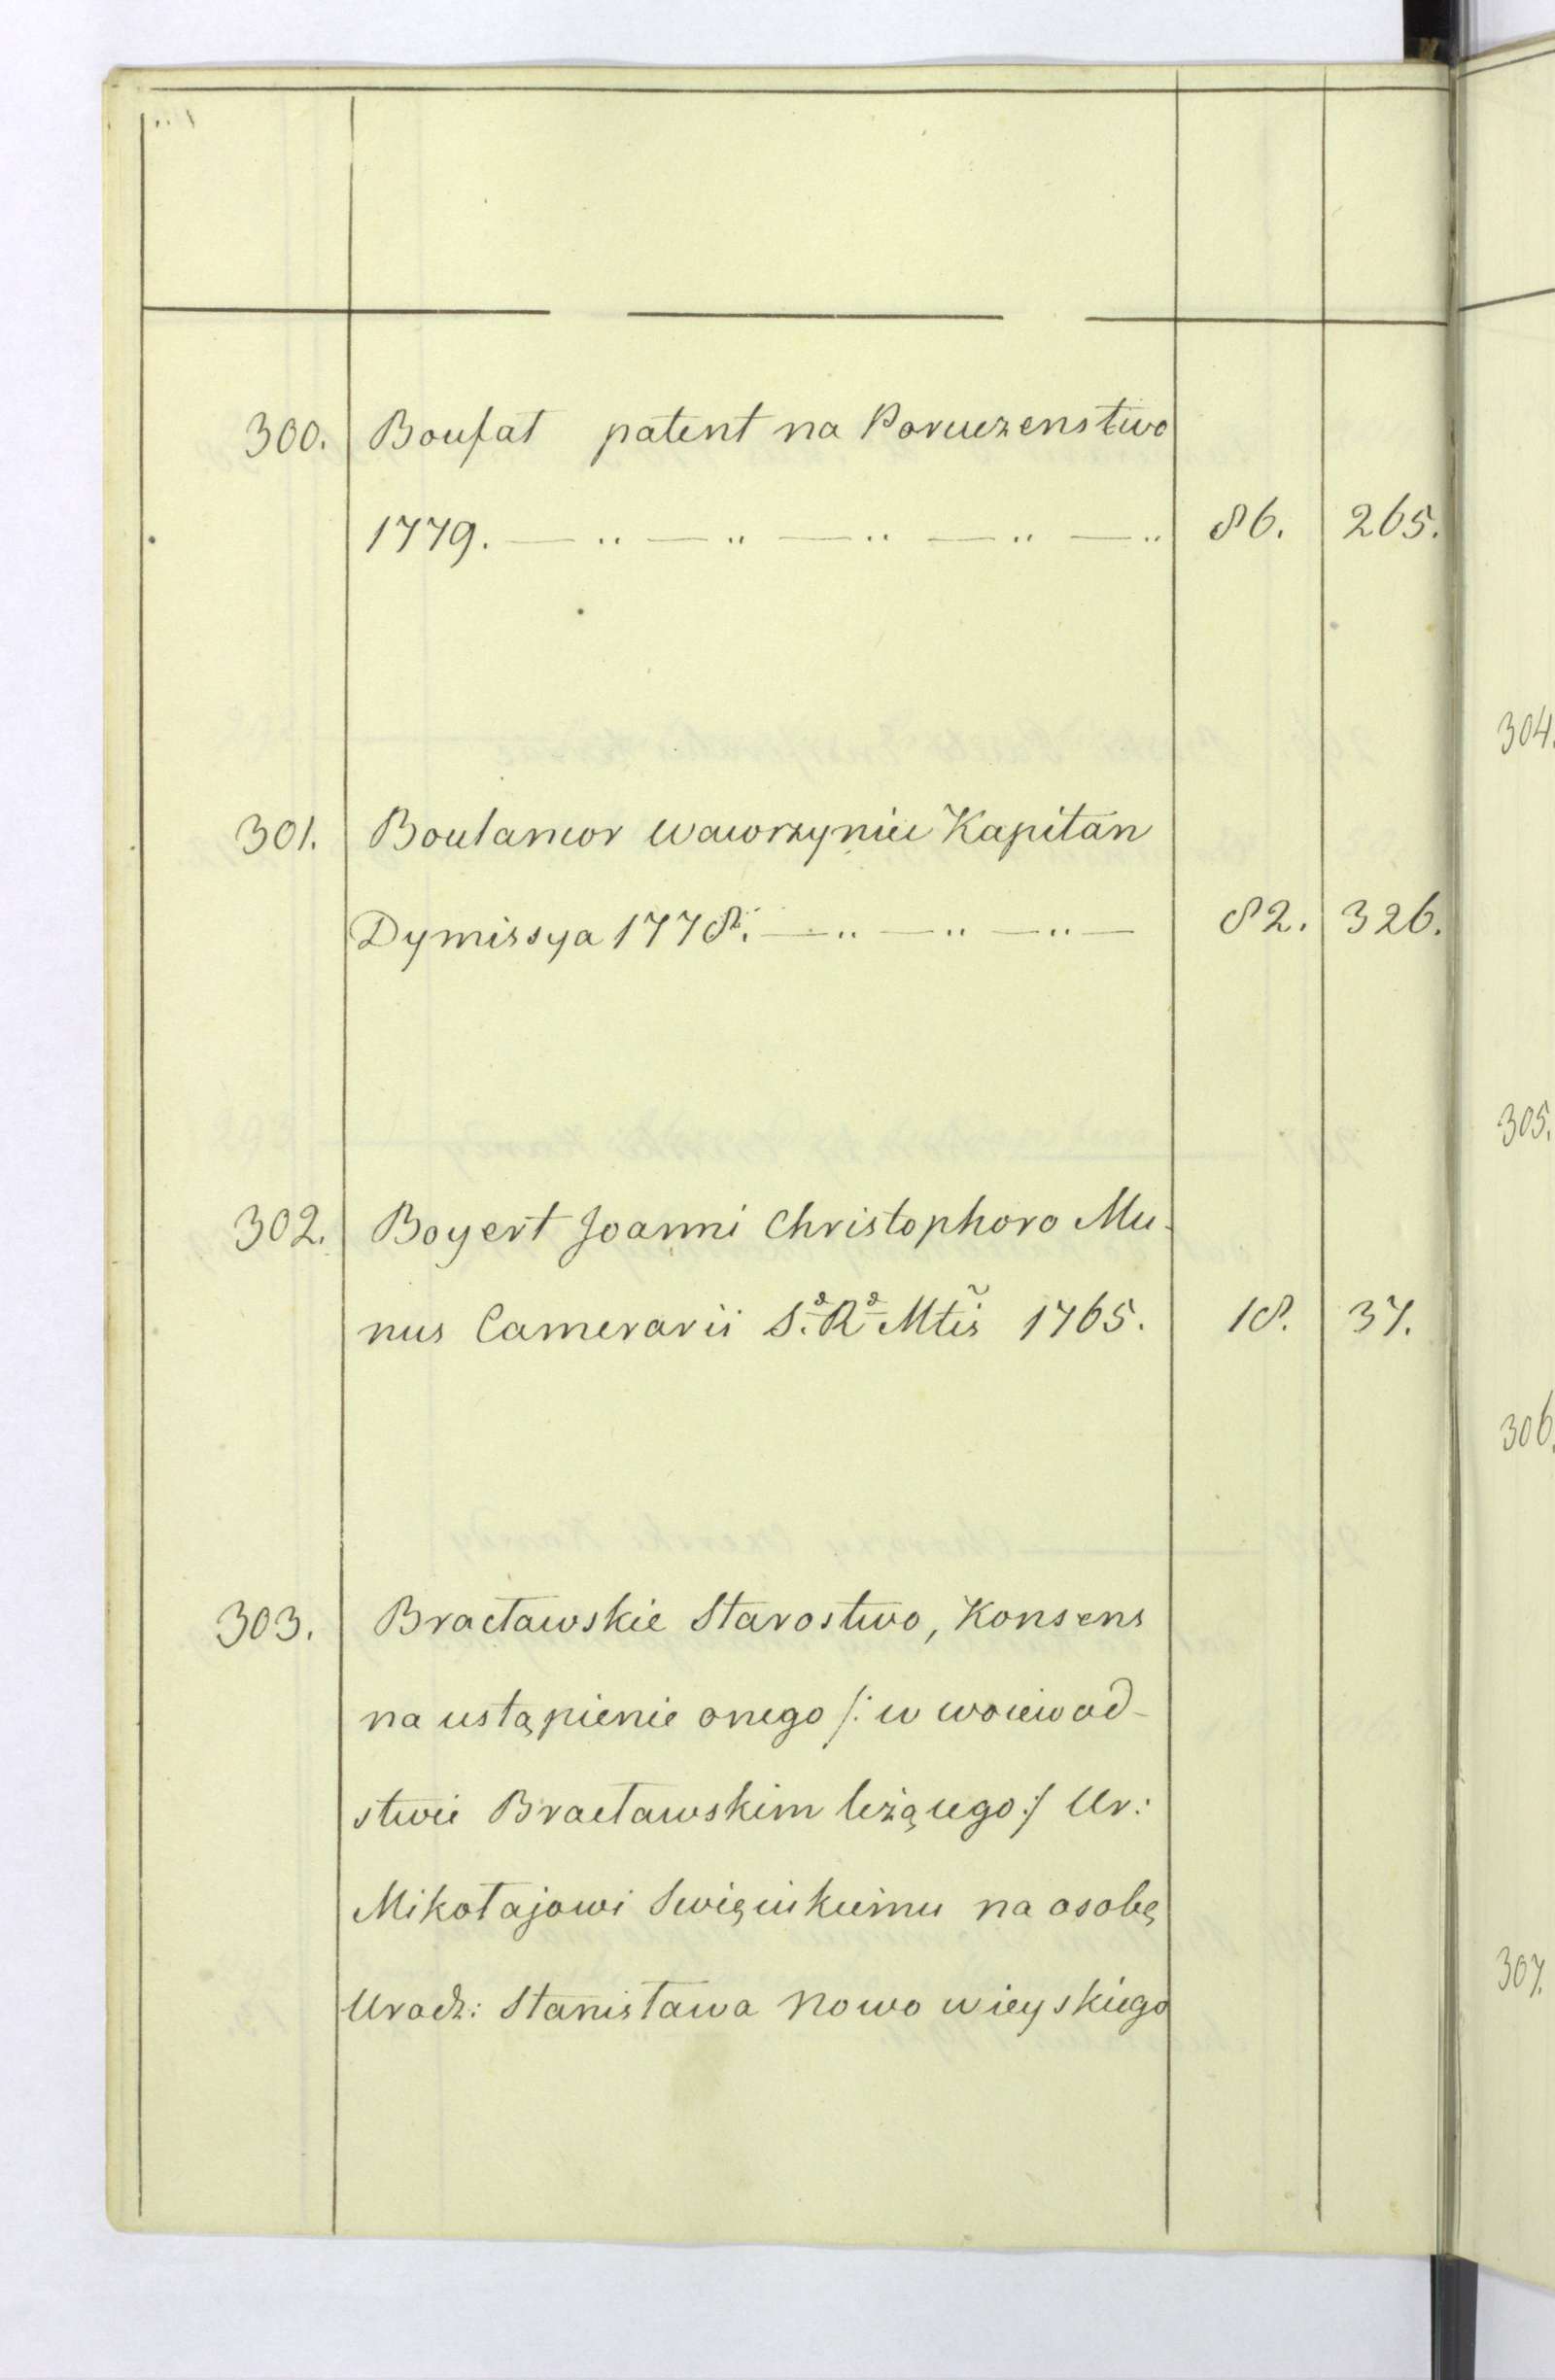 300. Boufał patent na Poruczenstwo
1779. — „ — „ — „ — „ — „ 86. 265.
301. Boulamor Wawrzyniec Kapitan
Dymissya 1778. — „ — „ — „ — 82. 326.
302. Boyert Joanni Christophoro Mu-
nus Camerarii S. R. Mtis 1765. 18. 37.
303. Bracławskie Starostwo, Konsens
na ustąpienie onego /: w woiewod-
stwie Bracławskim leżącego :/ Ur:
Mikołajowi Swięcickiemu na osobę
Urodz: Stanisława Nowowieyskiego
304.
305.
306.
307.